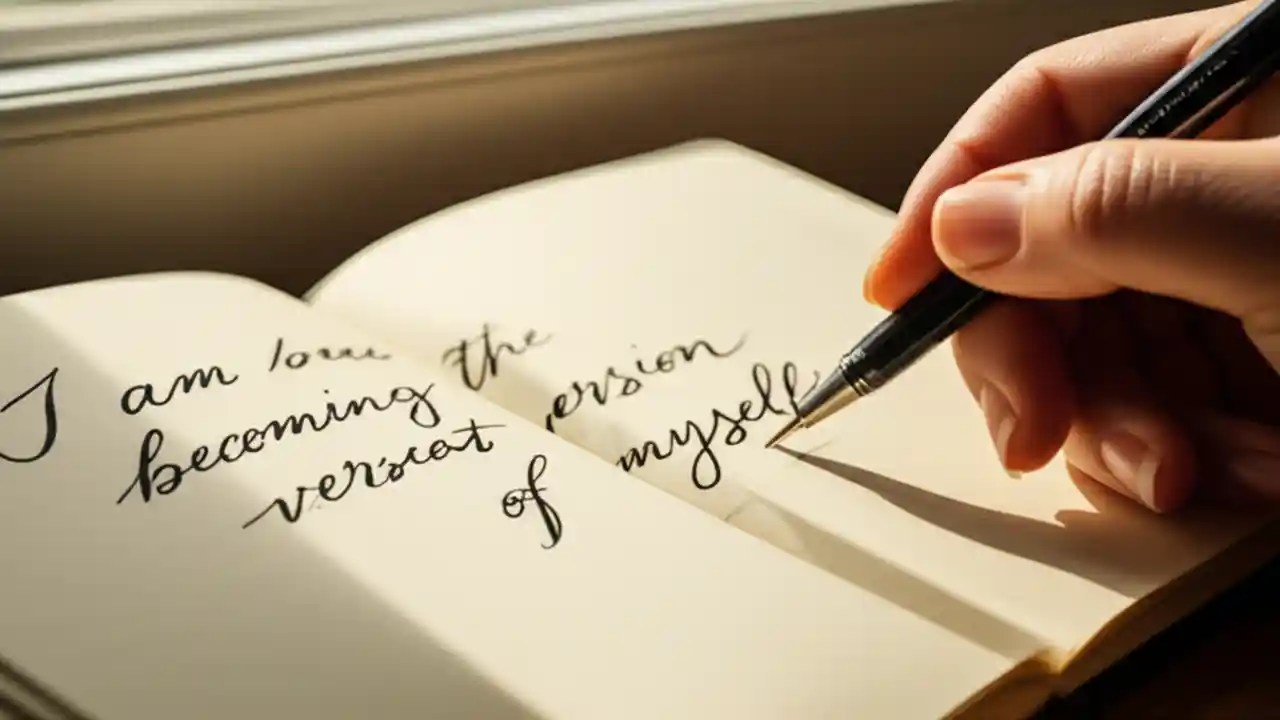 I am the
becoming ersion
verseat of myself